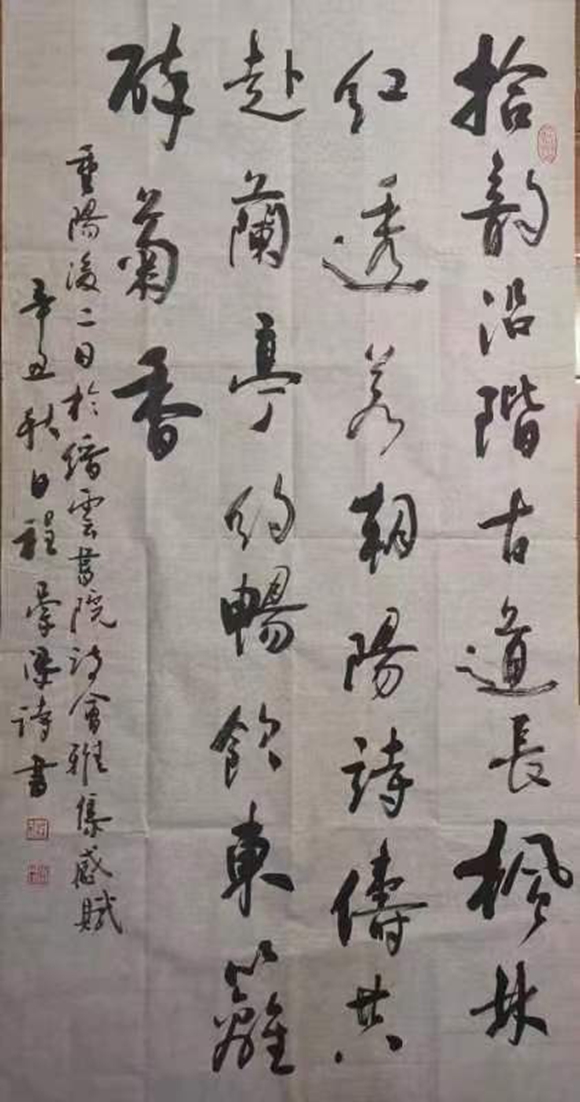 拾韵沿階古道長楓林
紅透若朝陽詩儔共
赴蘭亭約暢飲東籬
醉菊香
重陽後二日於縉雲書院詩會雅集感賦
辛丑秋日程學保詩書